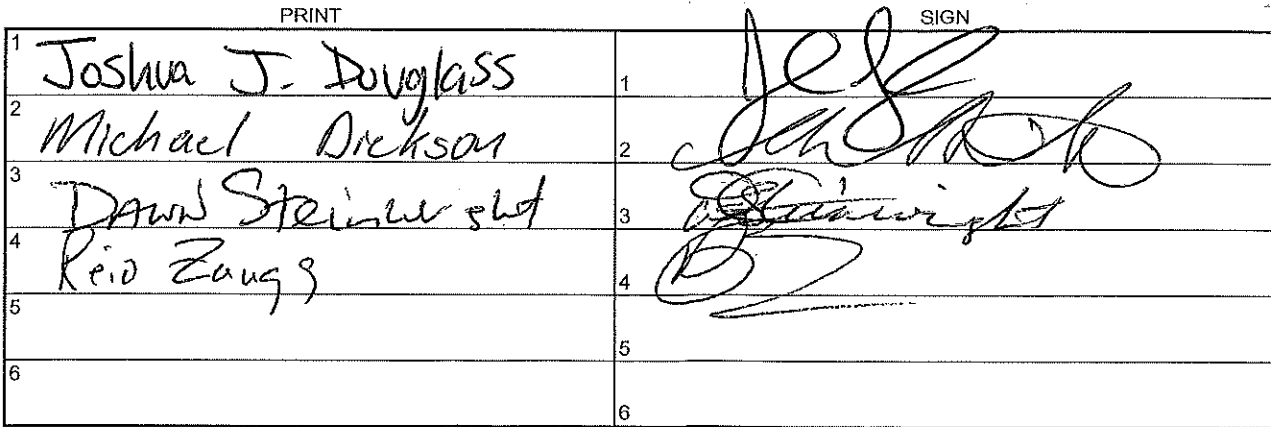 PRINT SIGN
1 Joshua J. Douglass 1
2 Michael Dickson 2
3 DAWN Steinwright 3 Steinwright
4 Reid Zaugg 4
5 5
6 6